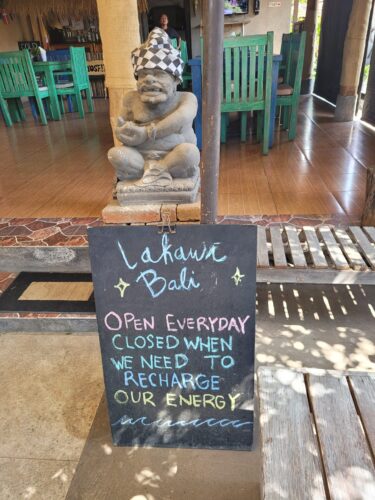 Lakawi
Bali
OPEN EVERYDAY
CLOSED WHEN
WE NEED TO
RECHARGE
OUR ENERGY